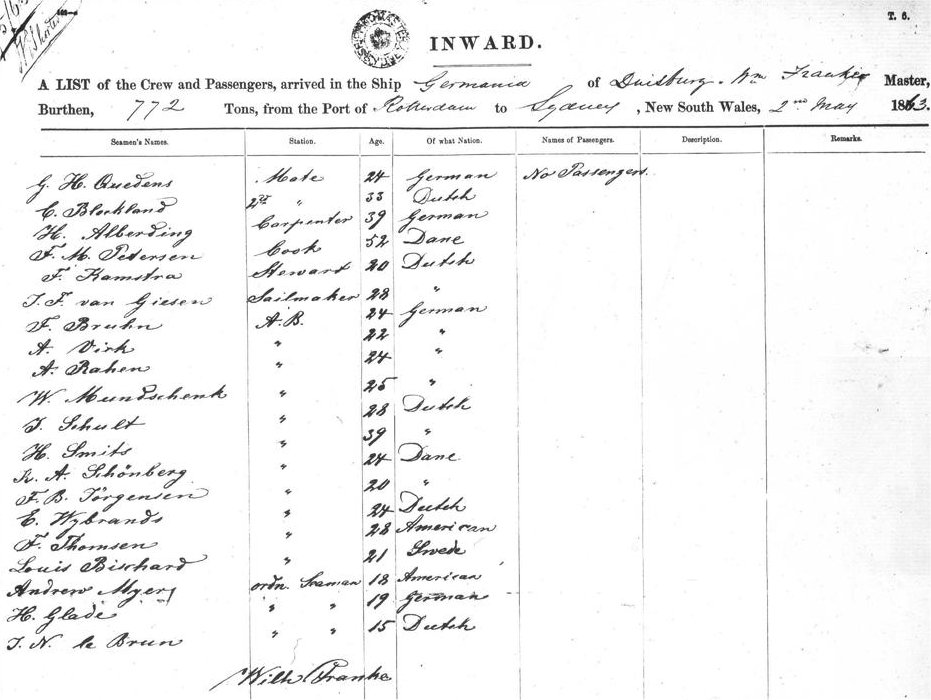 T. 6.
INWARD.
A LIST of the Crew and Passengers, arrived in the Ship Germania of Duisburg. Wm Franke Master,
Burthen, 772 Tons, from the Port of Rotterdam to Sydney, New South Wales, 2nd May 1863.
Seamen's Names. Station. Age. Of what Nation. Names of Passengers. Description. Remarks.
G. H. Quedens Mate 24 German No Passengers.
C. Blockland 2nd " 33 Dutch
H. Alberding Carpenter 39 German
F. M. Petersen Cook 52 Dane
F. Kamstra Stewart 20 Dutch
J. F. van Giesen Sailmaker 28 "
F. Bruhn A.B. 24 German
A. Virk " 22 "
A. Rahen " 24 "
W. Mundschenk " 25 "
J. Schult " 28 Dutch
H. Smits " 39 "
A. Schönberg " 24 Dane
F. B. Jörgensen " 20 "
E. Wybrands " 24 Dutch
F. Thomsen " 28 American
Louis Bischard " 21 Swede
Andrew Myers ordn. Seaman 18 American
H. Glade " " 19 German
J. N. le Brun " " 15 Dutch
Wilh Franke